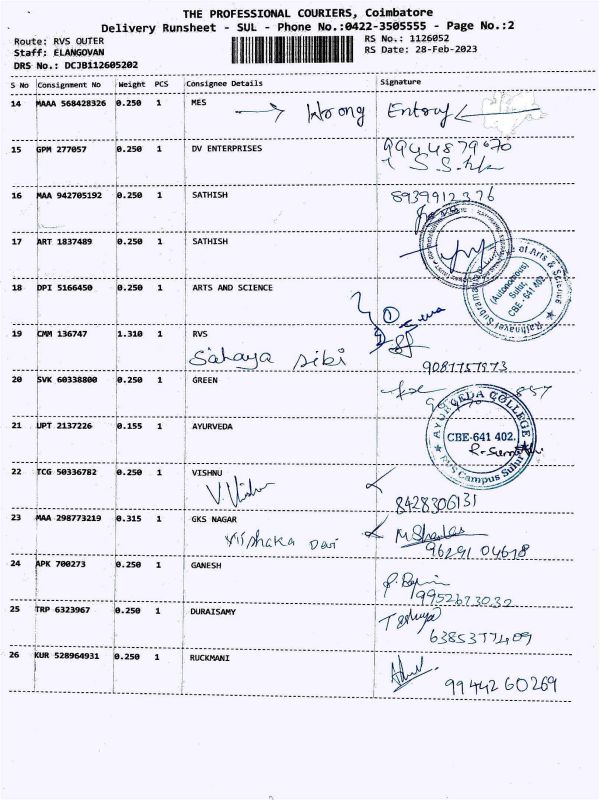 THE PROFESSIONAL COURIERS, Coimbatore
Delivery Runsheet - SUL - Phone No.:0422-3505555 - Page No.:2
Route: RVS OUTER RS No.: 1126052
Staff: ELANGOVAN RS Date: 28-Feb-2023
DRS No.: DCJB112605202
S No Consignment No Weight PCS Consignee Details Signature
14 MAAA 568428326 0.250 1 MES Wrong Entory
15 GPM 277057 0.250 1 DV ENTERPRISES 9944879670
16 MAA 942705192 0.250 1 SATHISH 8939912376
17 ART 1837489 0.250 1 SATHISH
of Arts & Science
(Autonomous)
Sulur,
CBE - 641 402.
Rathnavel Subramaniam
18 DPI 5166450 0.250 1 ARTS AND SCIENCE
1
19 CMM 136747 1.310 1 RVS
Sahaya sibi 9087757973
20 SVK 60338800 0.250 1 GREEN
AYURVEDA COLLEGE
CBE-641 402.
RVS Campus Sulur
21 UPT 2137226 0.155 1 AYURVEDA
22 TCG 50336782 0.250 1 VISHNU
V. Vishnu 8428306131
23 MAA 298773219 0.315 1 GKS NAGAR
Vishaka Dari 96291 04618
24 APK 700273 0.250 1 GANESH
9952673032
25 TRP 6323967 0.250 1 DURAISAMY
6385377409
26 KUR 528964931 0.250 1 RUCKMANI
99442 60269